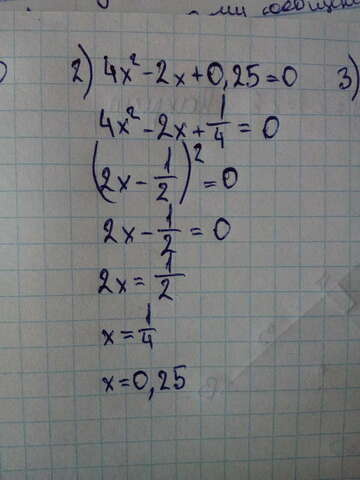 ми сообщ
2) 4x² - 2x + 0,25 = 0 3)
4x² - 2x + 1/4 = 0
(2x - 1/2)² = 0
2x - 1/2 = 0
2x = 1/2
x = 1/4
x = 0,25